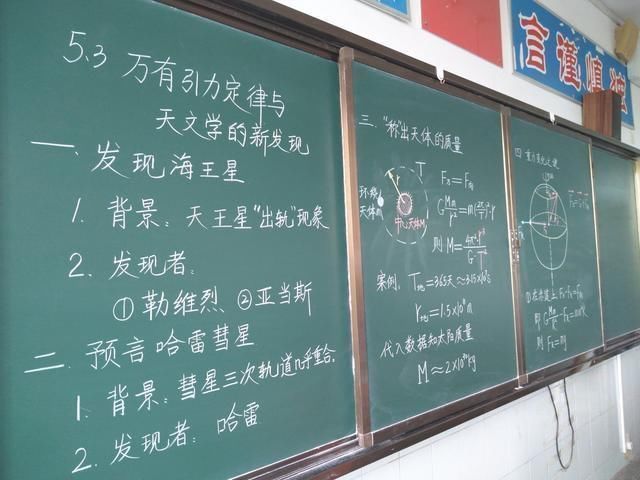 5.3 万有引力定律与
天文学的新发现
一、发现海王星
1. 背景：天王星“出轨”现象
2. 发现者：
①勒维烈 ②亚当斯
二、预言哈雷彗星
1. 背景：彗星三次轨道几乎重合
2. 发现者：哈雷
三、“称”出天体的质量
T
r
环绕
天体m
中心天体M
F万=F向
G Mm/r²=m(2π/T)²·r
则 M=4π²·r³/G·T²
案例：T地=365天≈3.15×10⁷s
r地=1.5×10¹¹m
代入数据知太阳质量
M≈2×10³⁰kg
四、重力
①在赤道上：
则
言谨慎独